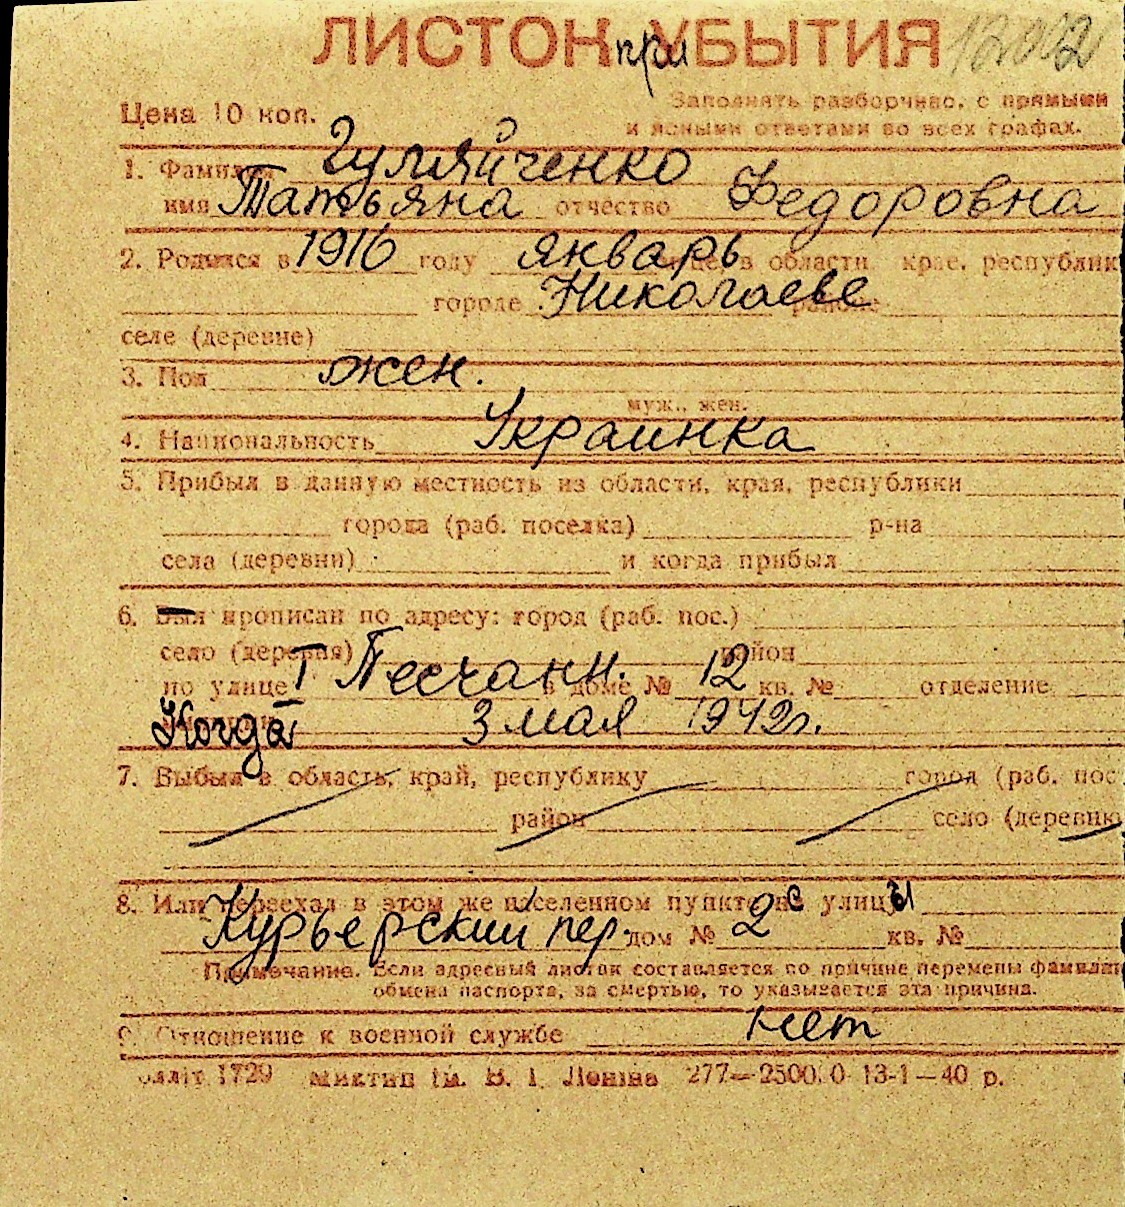 ЛИСТОК при УБЫТИЯ 12012
Цена 10 коп.
Заполнять разборчиво, с прямыми
и ясными ответами во всех графах.
1. Фамилия Гуляйченко
имя Татьяна отчество Федоровна
2. Родился в 1916 году январь м-це, в области крае, республик
городе Николаеве районе
селе (деревне)
3. Пол жен.
муж., жен.
4. Национальность Украинка
5. Прибыл в данную местность из области, края, республики
города (раб. поселка) р-на
села (деревни) и когда прибыл
6. Был прописан по адресу: город (раб. пос.)
село (деревня) район
по улице I Песчанн. в доме № 12 кв. № отделение
Когда 3 мая 1942г.
7. Выбыл в область, край, республику город (раб. пос
район село (деревню
8. Или переехал в этом же населенном пункте с улицы
Курьерский пер. дом № 2 кв. №
Примечание. Если адресный листок составляется по причине перемены фамилии
обмена паспорта, за смертью, то указывается эта причина.
9. Отношение к военной службе нет
олліт 1729 Миктип ім. В. І. Леніна 277—2500.0 13-1—40 р.